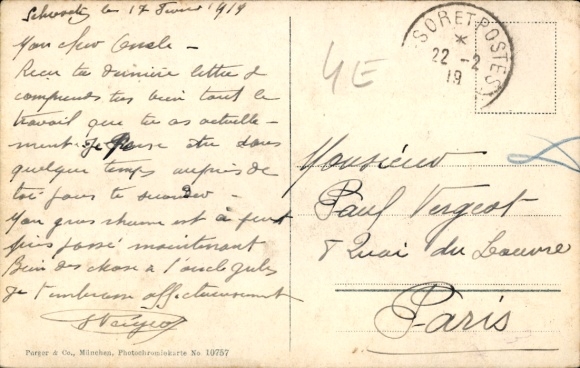 17 Fevrier 1919
Mon cher Oncle –
Recu ta dernière lettre &
comprends très bien tout le
travail que tu as actuelle-
ment. Je pense être dans
quelque temps auprès de
toi pour te seconder –
Mon gros rhume est à peu
près passé maintenant
Bien des choses à l'oncle Jules
Je t'embrasse affectueusement
TRESOR ET POSTES
*
22 -2
19
4E
Monsieur
Paul Vergeot
8 Quai du Louvre
Paris
Purger & Co., München, Photochromiekarte No. 10757